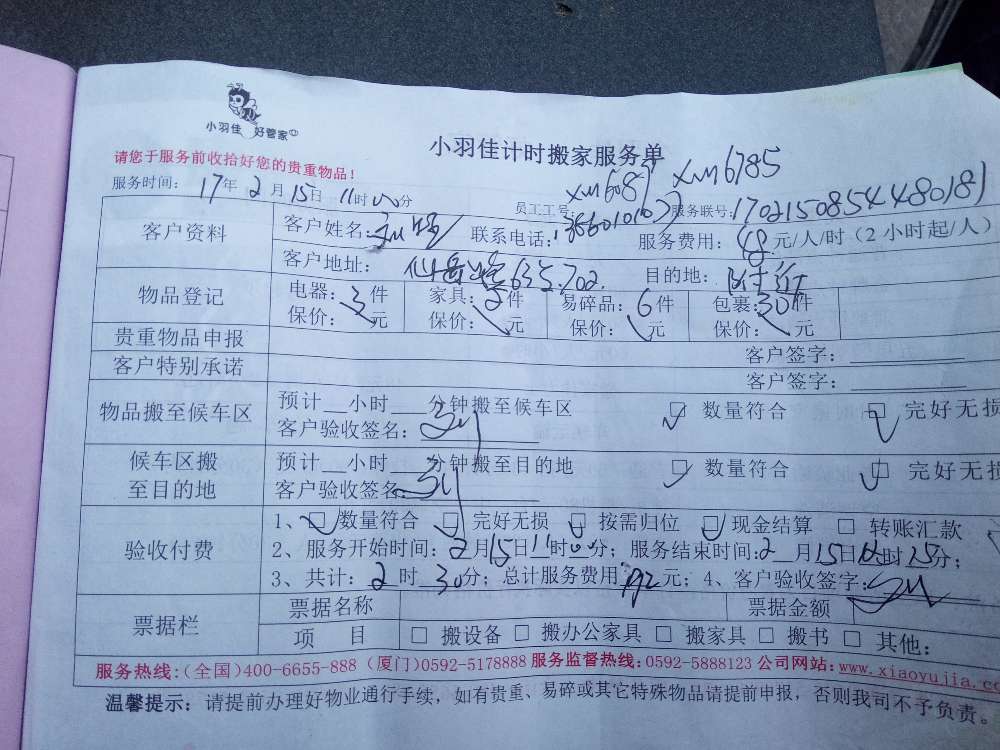 小羽佳 好管家
小羽佳计时搬家服务单
请您于服务前收拾好您的贵重物品！
服务时间： 17年 2月 15日 11时00分 员工工号 xm6087 xm6785 服务联号：170215085444480181
客户资料 客户姓名： 联系电话： 服务费用： 48元/人/时（2小时起/人）
客户地址： 仙岳 635.702 目的地： 附近
物品登记 电器：3件 家具：2件 易碎品：6件 包裹：30件
保价： 元 保价： 元 保价： 元 保价： 元
贵重物品申报 客户签字：
客户特别承诺 客户签字：
物品搬至候车区 预计__小时___分钟搬至候车区 数量符合 完好无损
客户验收签名：
候车区搬至目的地 预计__小时___分钟搬至目的地 数量符合 完好无损
客户验收签名：
验收付费 1、 数量符合 完好无损 按需归位 现金结算 转账汇款
2、服务开始时间：2月15日11时00分；服务结束时间：2月15日 时 25分；
3、共计：2时30分；总计服务费用： 元；4、客户验收签字：
票据栏 票据名称 票据金额
项 目 □ 搬设备 □ 搬办公家具 □ 搬家具 □ 搬书 □ 其他：
服务热线：(全国)400-6655-888 (厦门)0592-5178888 服务监督热线：0592-5888123 公司网站：www.xiaoyujia.co
温馨提示：请提前办理好物业通行手续，如有贵重、易碎或其它特殊物品请提前申报，否则我司不予负责。